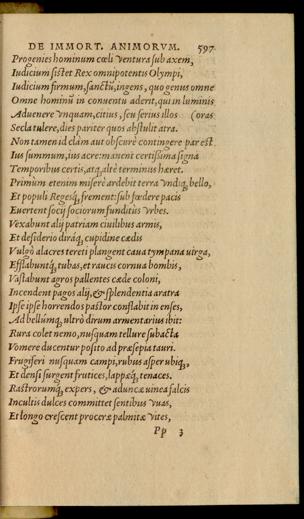 DE IMMORT. ANIMORVM. 597
Progenies hominum cœli ventura sub axem,
Iudicium sistet Rex omnipotentis Olympi,
Iudicium firmum, sanctũ, ingens, quo genus omne
Omne hominũ in conuentu aderit, qui in luminis
Aduenere vnquam, citius, seu serius illos (oras
Secla tulere, dies pariter quos abstulit atra.
Non tamen id clàm aut obscurè contingere par est.
Ius summum, ius acre: manent certissima signa
Temporibus certis, atq, altè terminus hæret.
Primùm etenim miserè ardebit terra vndiq, bello,
Et populi Regesq́, frement: sub fœdere pacis
Euertent socij sociorum funditùs vrbes.
Vexabunt alij patriam ciuilibus armis,
Et desiderio diráq, cupidine cædis
Vulgò alacres tereti plangent caua tympana uirga,
Efflabuntq́, tubas, et raucis cornua bombis,
Vastabunt agros pallentes cæde coloni,
Incendent pagos alij, & splendentia aratra
Ipse ipse horrendos pastor conflabit in enses,
Ad bellúmq, ultrò dirum armentarius ibit:
Rura colet nemo, nusquam tellure subacta
Vomere ducentur posito ad præsepia tauri.
Frugiferi nusquam campi, rubus asper ubiq,
Et densi surgent frutices, lappæq́, tenaces.
Rastrorumq, expers, & aduncæ uinea falcis
Incultis dulces committet sentibus vuas,
Et longo crescent proceræ palmitæ vites,
Pp 3